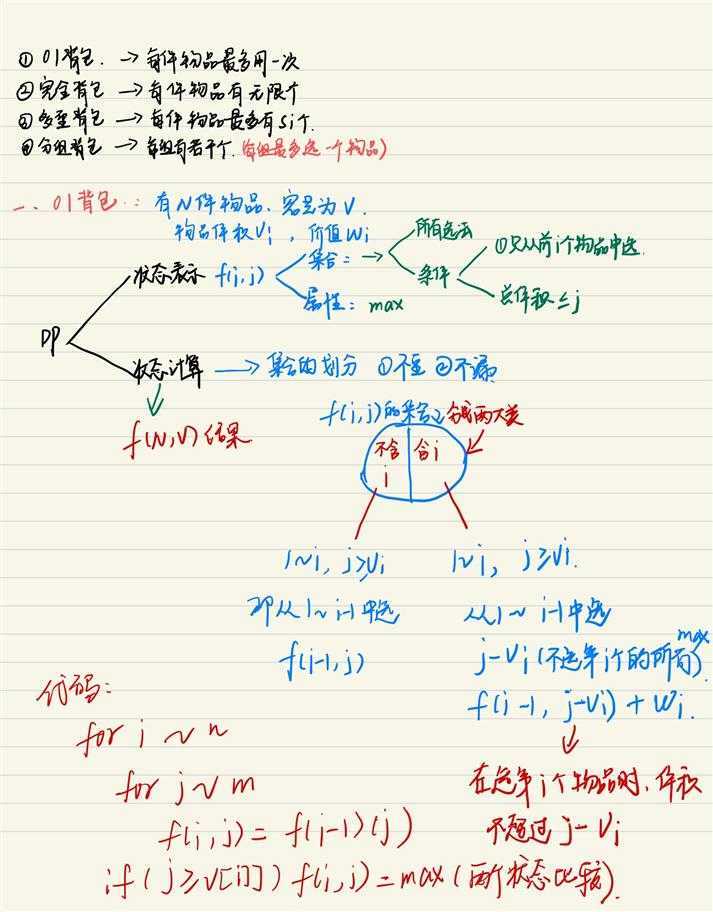 ① 01背包. → 每件物品最多用一次
② 完全背包 → 每件物品有无限个
③ 多重背包 → 每件物品最多有si个.
④ 分组背包 → 每组有若干个. (每组最多选一个物品)
一、01背包: 有N件物品、容量为V.
物品体积Vi, 价值Wi
DP
状态表示 f(i,j)
集合: →
所有选法
条件
①只从前i个物品中选.
总体积≤j
属性: max
状态计算 → 集合的划分 ①不重 ②不漏
f(N,V) 结果
f(i,j)的集合 分成两大类
不含i
含i
1~i, j≥Vi
即从1~i-1中选
f(i-1,j)
1~i, j≥Vi.
从1~i-1中选
j-Vi(不选第i个的所有)max
f(i-1, j-Vi) + Wi.
在选第i个物品时,体积
不超过j-Vi
代码:
for i ~ n
for j ~ m
f(i,j) = f(i-1)(j)
if(j≥V[i]) f(i,j)=max(两个状态比较).